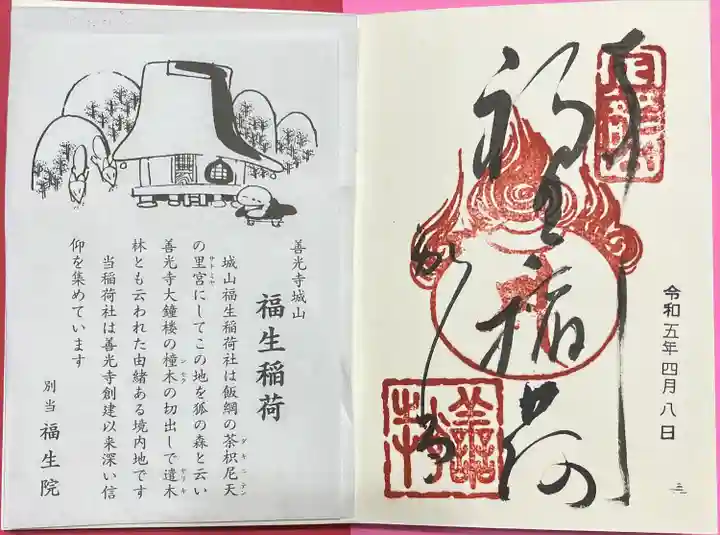 奉
福生稲荷
令和五年四月八日
善光寺城山
福生稲荷
城山福生稲荷社は飯綱の茶枳尼天
ダキニテン
の里宮にしてこの地を狐の森と云い
サトミヤ
善光寺大鐘楼の橦木の切出しで遣木
シモク
ヤリキ
林とも云われた由緒ある境内地です
当稲荷社は善光寺創建以来深い信
仰を集めています
別当 福生院